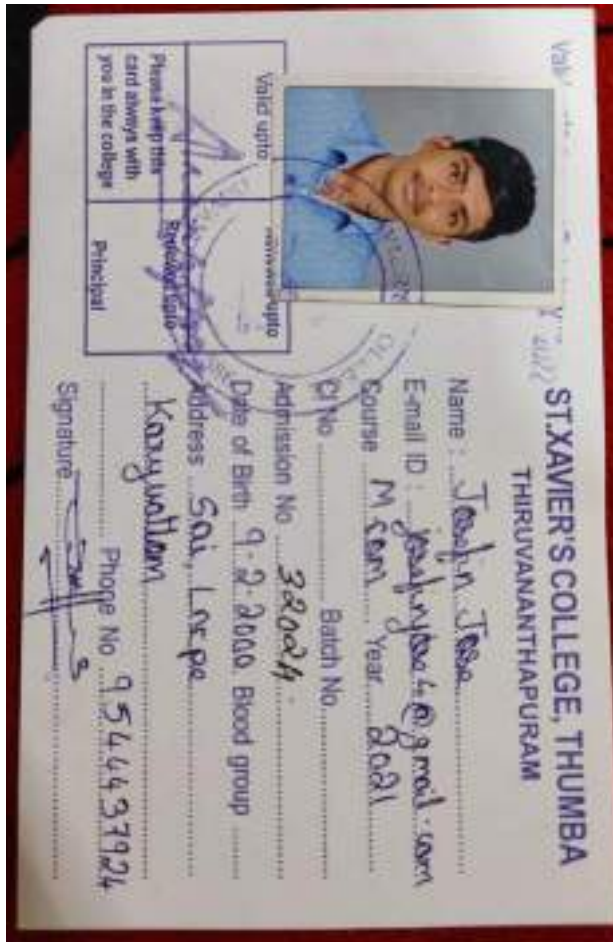 ST.XAVIER'S COLLEGE, THUMBA
THIRUVANANTHAPURAM
Name :
E-mail ID : @gmail.com
Course M com Year 2021
Cl No Batch No
Admission No 32024
Date of Birth 9.2.2000 Blood group
Address Sai, Lncpe
Phone No 9544437924
Signature
Valid upto
Renewed upto
Please keep this
card always with
you in the college
Principal